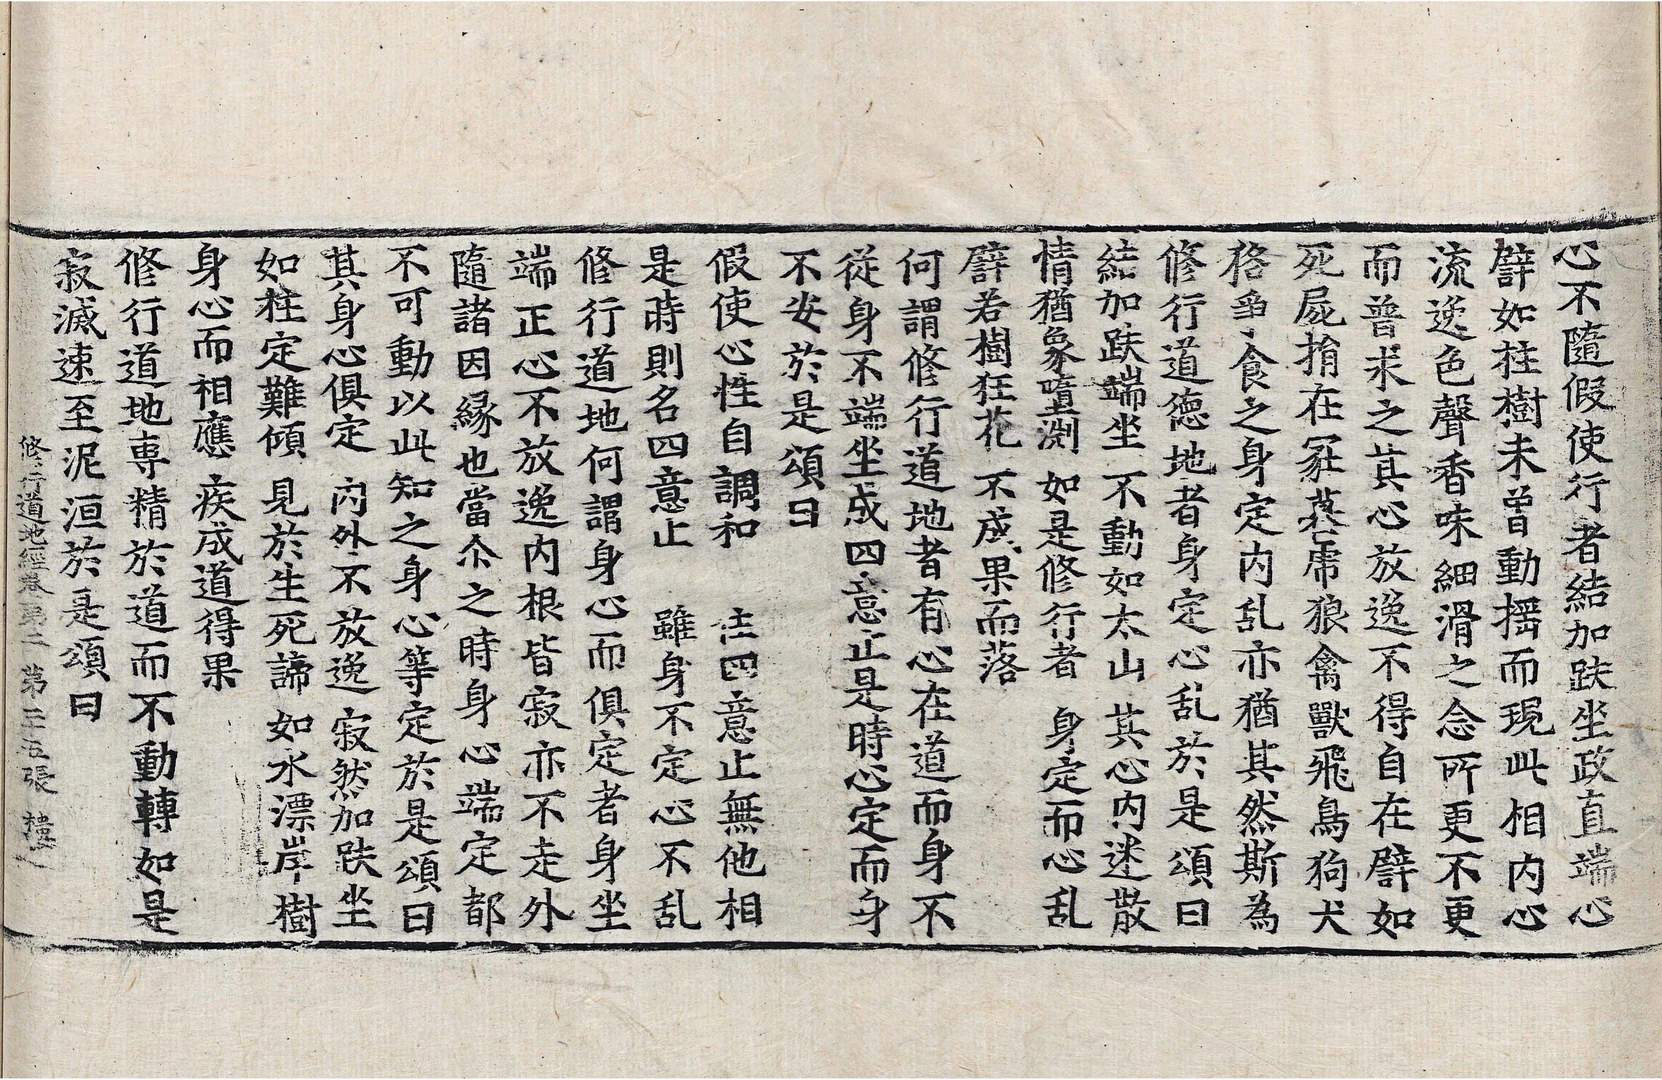 心不隨假使行者結加趺坐政直端心
譬如柱樹未曾動搖而現此相内心
流逸色聲香味細滑之念所更不更
而普求之其心放逸不得自在譬如
死屍捐在冢墓虎狼禽獸飛鳥狗犬
挌爭食之身定内乱亦猶其然斯為
修行道德地者身定心乱於是頌曰
結加趺端坐 不動如太山 其心内迷散
情猶象墮渕 如是修行者 身定而心乱
譬若樹狂花 不成果而落
何謂修行道地者有心在道而身不
從身不端坐成四意止是時心定而身
不安於是頌曰
假使心性自調和 住四意止無他相
是時則名四意止 雖身不定心不乱
修行道地何謂身心而俱定者身坐
端正心不放逸内根皆寂亦不走外
隨諸因緣也當尒之時身心端定都
不可動以此知之身心等定於是頌曰
其身心俱定 内外不放逸 寂然加趺坐
如柱定難傾 見於生死諦 如水漂岸樹
身心而相應 疾成道得果
修行道地専精於道而不動轉如是
寂滅速至泥洹於是頌曰
修行道地經卷第二 第三五張